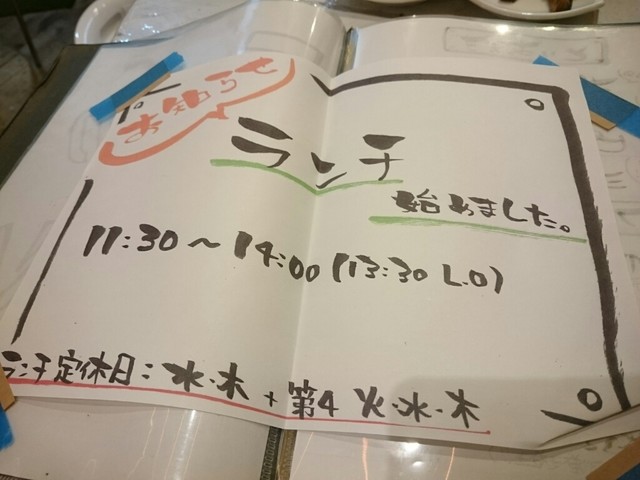 お知らせ
ランチ
始めました。
11:30～14:00(13:30 L.O)
ランチ定休日：水・木+第4 火・水・木